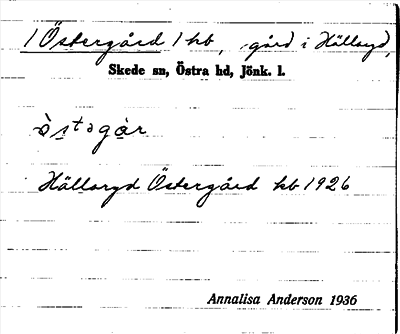 /Östergård/ hb, gård i Hällaryd,
Skede sn, Östra hd, Jönk. l.
östagår
Hällaryd Östergård hb 1926
Annalisa Anderson 1936